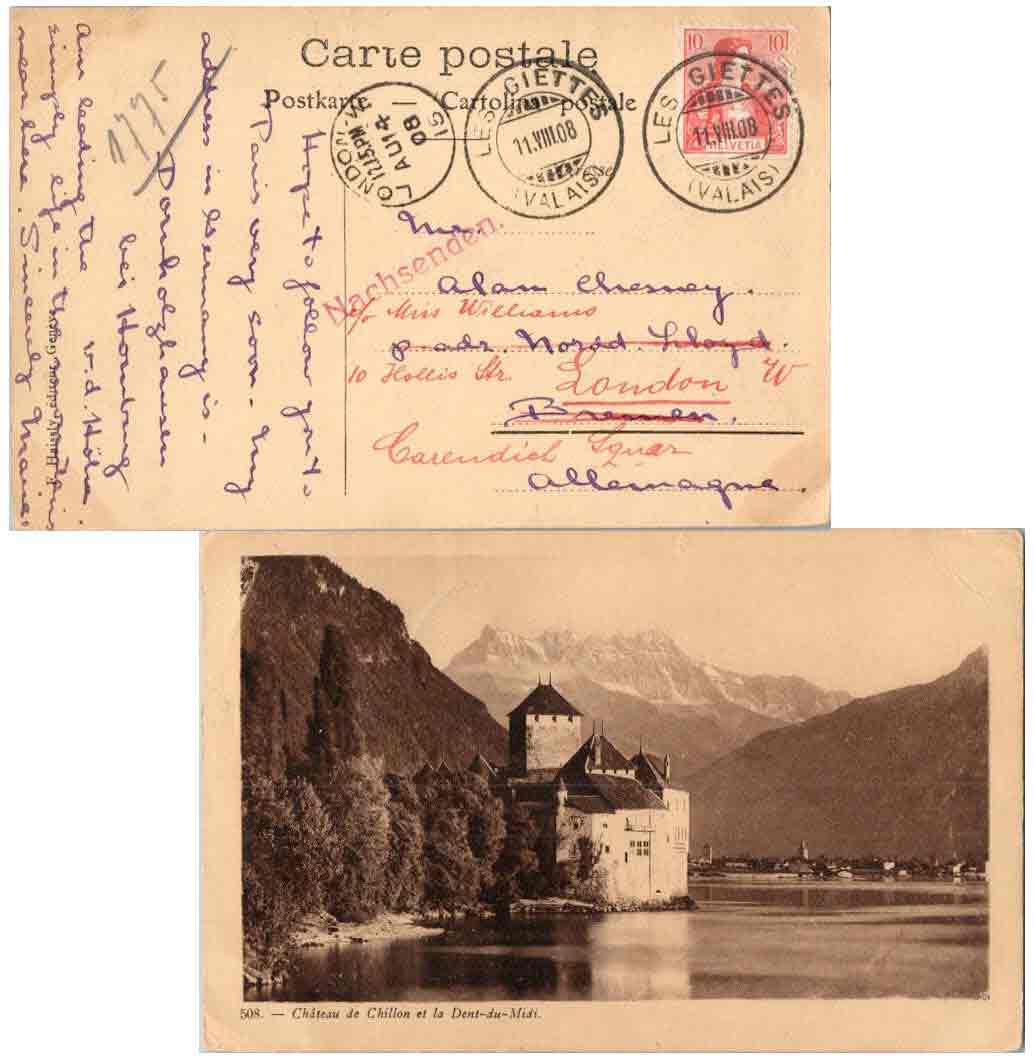 Carte postale
Postkarte — Cartolina postale
10 10
HELVETIA
LES GIETTES
11.VIII.08
(VALAIS)
LES GIETTES
11.VIII.08
(VALAIS)
LONDON. W
12.15.PM
AU 14
08
15
1775
Nachsenden.
Mr.
Alan Chesney.
c/o Miss Williams
p. adr. Nordd. Lloyd.
10 Hollis Str. London W
Bremen.
Carendich Squar
Allemagne.
Hope to follow you to
Paris very soon. My
address in Germany is -
Dornholzhausen
bei Homburg
v. d. Höhe.
Am leading the
simple life in the mountains
near here. Sincerely
F. Haissly, éditeur, Genève
508. — Château de Chillon et la Dent-du-Midi.